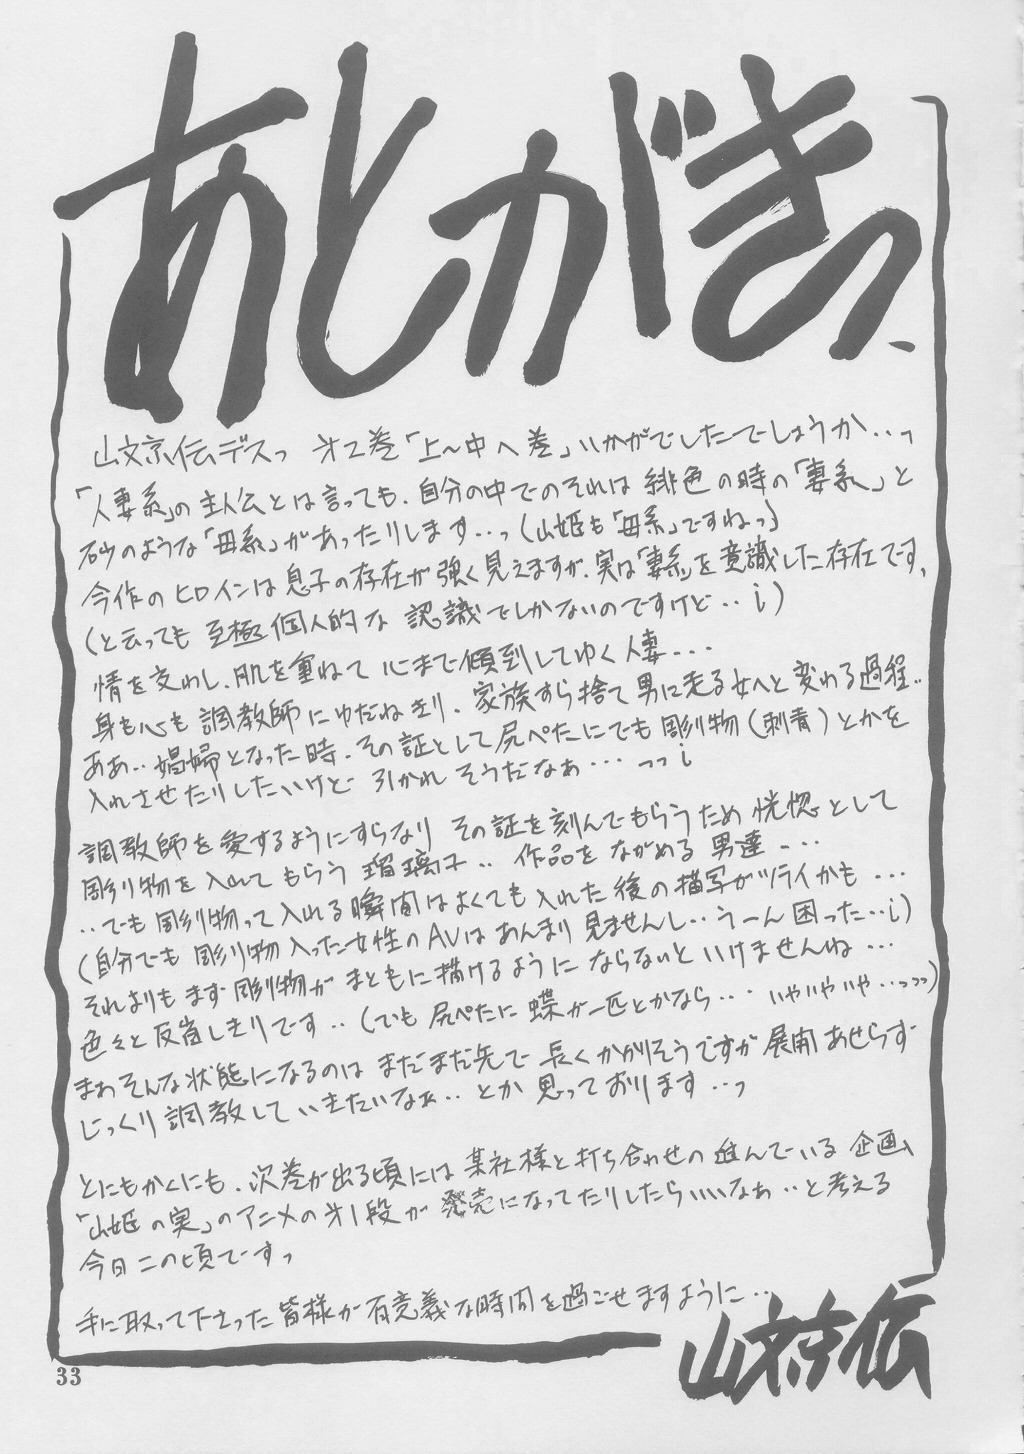 あとがきっ、
山文京伝デスっ 才2巻「上〜中へ巻」いかがでしたでしょうか‥っ
「人妻系」の主人公とは言っても、自分の中でのそれは 緋色の時の「妻系」と
砂のような「母系」があったりします…っ(山姫も「母系」ですねっ)
今作のヒロインは息子の存在が強く見えますが、実は「妻系」を意識した存在です、
(と云っても 至極個人的な 認識でしかないのですけど‥i)
情を交わし、肌を重ねて 心まで傾到してゆく人妻・・・
身も心も 調教師にゆだねきり、家族すら捨て 男に走る女へと 変わる過程‥
ああ‥娼婦となった時、その証として尻ぺたにでも 彫り物(刺青)とかを
入れさせたりしたいけど 引かれ そうだなぁ・・・ っっi
調教師を愛するようにすらなり その証を刻んでもらうため 恍惚として
彫り物を入れて もらう 瑠璃子‥ 作品を ながめる 男達・・・
‥でも 彫り物って入れる瞬間はよくても入れた後の描写がツライかも・・・
(自分でも 彫り物入った女性のAVはあんまり見ませんし‥うーん困った…i)
それよりもまず彫り物が まともに描けるように ならないといけませんね・・・
色々と反省しきりです‥(でも 尻ぺたに 蝶が一匹とかなら・・・ いやいやいや‥っっっ)
まわそんな状態になるのは まだまだ先で 長くかかりそうですが 展開 あせらず
じっくり調教して いきたいなぁ‥ とか 思っております‥っ
とにもかくにも、次巻が出る頃には 某社様と打ち合わせの 進んでいる 企画、
「山姫の実」のアニメの才1段が 発売になってたりしたらいいなぁ‥と考える
今日この頃ですっ
手に取って下さった皆様が有意義な時間を過ごせますように‥
山文京伝
33